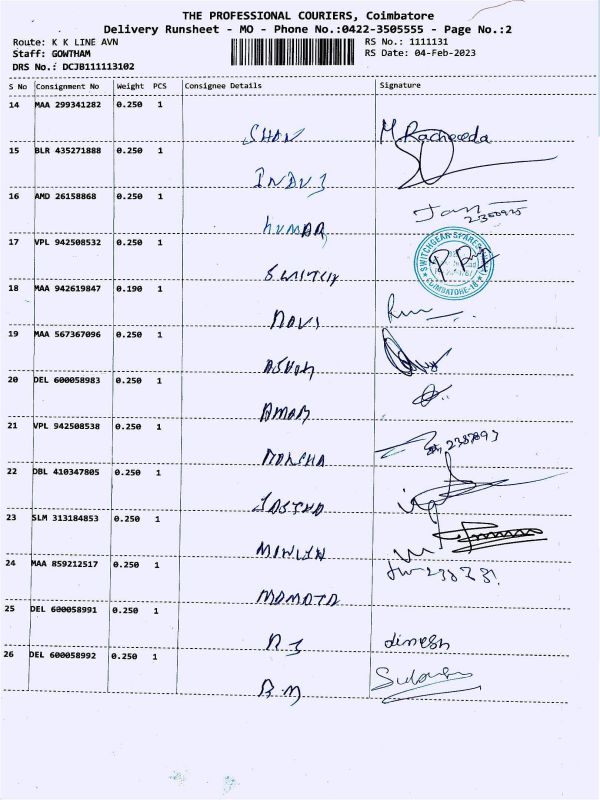 THE PROFESSIONAL COURIERS, Coimbatore
Delivery Runsheet - MO - Phone No.:0422-3505555 - Page No.:2
Route: K K LINE AVN RS No.: 1111131
Staff: GOWTHAM RS Date: 04-Feb-2023
DRS No.: DCJB111113102
S No Consignment No Weight PCS Consignee Details Signature
14 MAA 299341282 0.250 1
SHAN M. Racheeda
15 BLR 435271888 0.250 1
16 AMD 26158868 0.250 1
KUMAR
17 VPL 942508532 0.250 1
SWITCH
SWITCHGEAR SPARES
COIMBATORE-18
18 MAA 942619847 0.190 1
RAVI
19 MAA 567367096 0.250 1
ASHOK
20 DEL 600058983 0.250 1
AMAR
21 VPL 942508538 0.250 1
22 DBL 410347805 0.250 1
23 SLM 313184853 0.250 1
24 MAA 859212517 0.250 1
MAMATA
25 DEL 600058991 0.250 1
dinesh
26 DEL 600058992 0.250 1